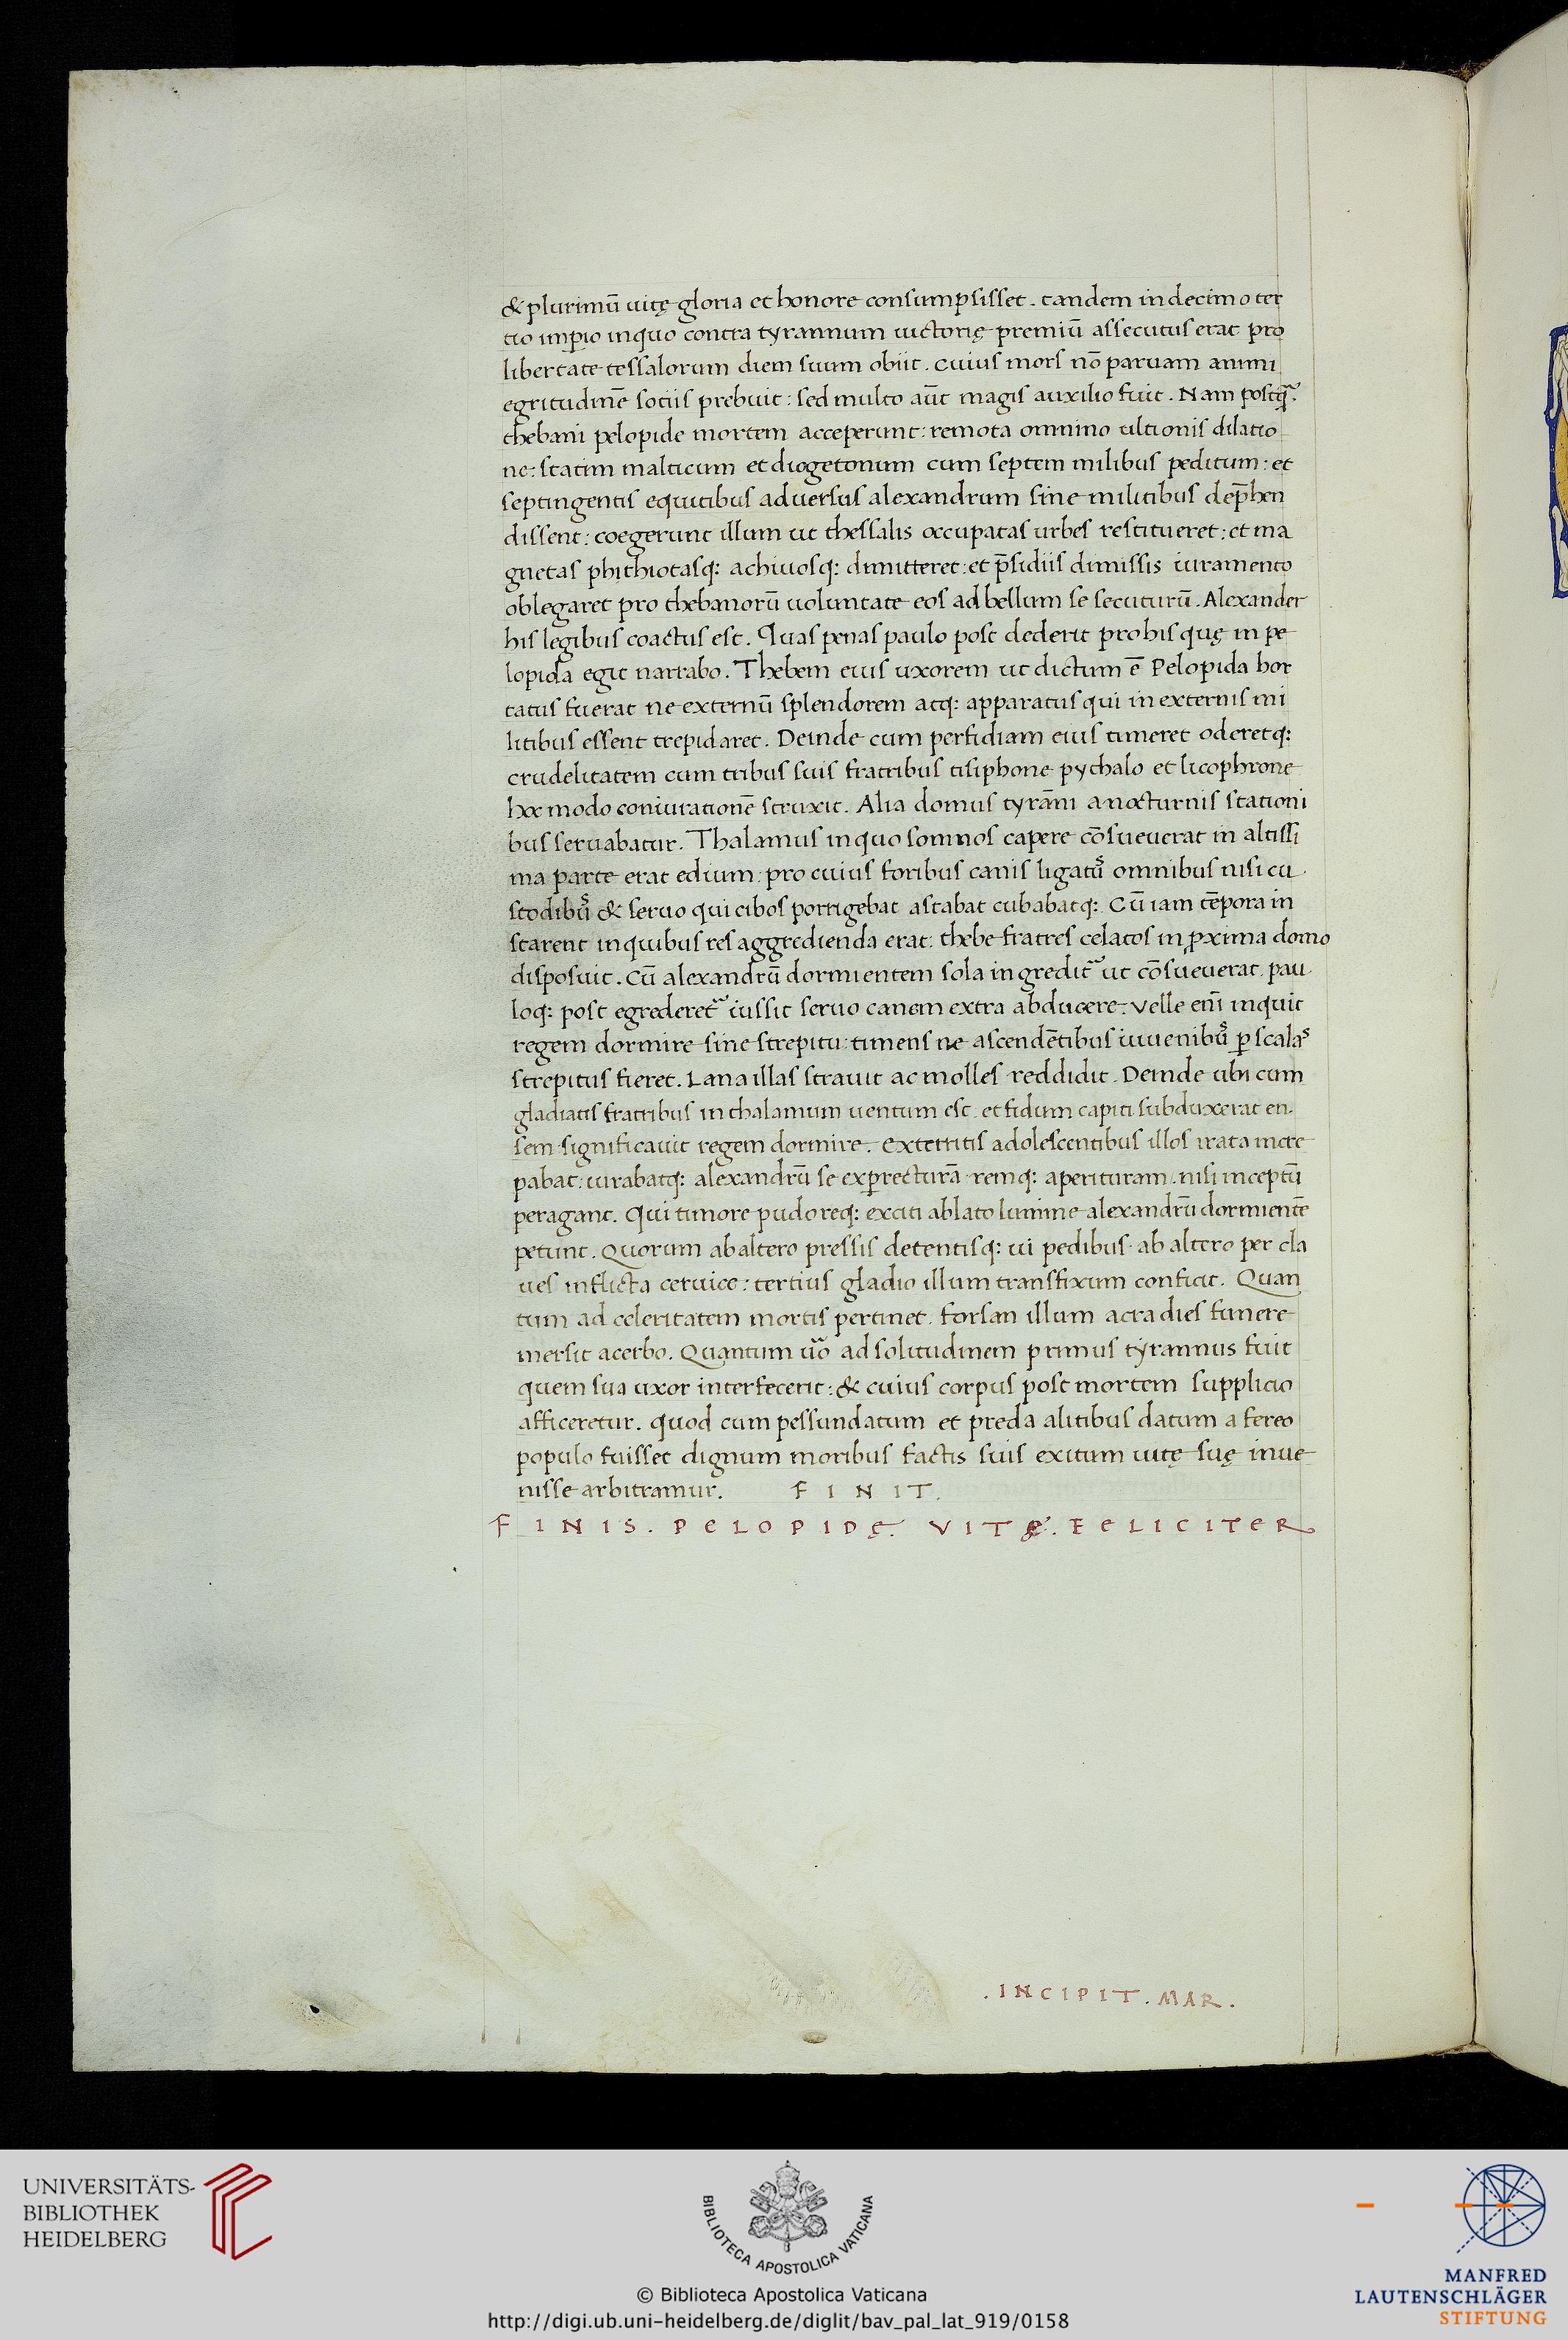 & plurimū uitę gloria et honore consumpsisset. tandem in decimo ter
tio imꝑio in quo contra tyrannum uictorię premiū assecutus erat pro
libertate tessalorum diem suum obiit. cuius mors nō paruam animi
egritudinē sotiis prebuit: sed multo aūt magis auxilio fuit. Nam postq̃.
thebani pelopide mortem acceperunt: remota omnino ultionis dilatio
ne: statim malticum et diogetonum cum septem milibus peditum: et
septingentis equitibus aduersus alexandrum sine militibus dep̄hen
dissent: coegerunt illum ut thessalis occupatas urbes restitueret: et ma
gnetas phithiotasq: achiuosq: dimitteret: et p̄sidiis dimissis iuramento
oblegaret pro thebanorū uoluntate eos ad bellum se secuturū. Alexander
his legibus coactus est. Quas penas paulo post dederit pro his quę in pe
lopida egit narrabo. Thebem eius uxorem ut dictum ē Pelopida hor
tatus fuerat ne externū splendorem atq: apparatus qui in externis mi
litibus essent trepidaret. Deinde cum perfidiam eius timeret oderetq:
crudelitatem cum tribus suis fratribus tisiphone pythalo et licophrone
hoc modo coniurationē struxit. Alia domus tyrāni a nocturnis stationi
bus seruabatur. Thalamus in quo somnos capere cōsueuerat in altissi
ma parte erat edium: pro cuius foribus canis ligatus omnibus nisi cu
stodibus & seruo qui cibos porrigebat astabat cubabatq: Cū iam tēpora in
starent in quibus res aggredienda erat: thebe fratres celatos in ꝓxima domo
disposuit. Cū alexandrū dormientem sola ingredit᷑ ut cōsueuerat. pau
loq: post egrederet᷑ iussit seruo canem extra abducere. Velle eni̅ inquit
regem dormire sine strepitu: timens ne ascendētibus iuuenibus ꝑ scalas
strepitus fieret. Lana illas strauit ac molles reddidit. Deinde ubi cum
gladiatis fratribus in thalamum uentum est. et fidum capiti subduxerat en
sem significauit regem dormire. Exterritis adolescentibus illos irata incre
pabat: iurabatq: alexandrū se exꝑrecturā remq: aperituram. nisi inceptū
peragant. Qui timore pudoreq: exciti ablato lumine alexandrū dormientē
petunt. Quorum ab altero pressis detentisq: ui pedibus. ab altero per cla
ues inflicta ceruice: tertius gladio illum transfixum conficit. Quan
tum ad celeritatem mortis pertinet. forsan illum atra dies funere
mersit acerbo. Quantum ūo ad solitudinem primus tyrannus fuit
quem sua uxor interfecerit: & cuius corpus post mortem supplicio
afficeretur. quod cum pessundatum et preda alitibus datum a fereo
populo fuisset dignum moribus factis suis exitum uitę suę inue
nisse arbitramur. FINIT.
FINIS. PELOPIDĘ. VITĘ. FELICITER
.INCIPIT. MAR.
UNIVERSITÄTS-
BIBLIOTHEK
HEIDELBERG
BIBLIOTECA APOSTOLICA VATICANA
© Biblioteca Apostolica Vaticana
http://digi.ub.uni-heidelberg.de/diglit/bav_pal_lat_919/0158
MANFRED
LAUTENSCHLÄGER
STIFTUNG